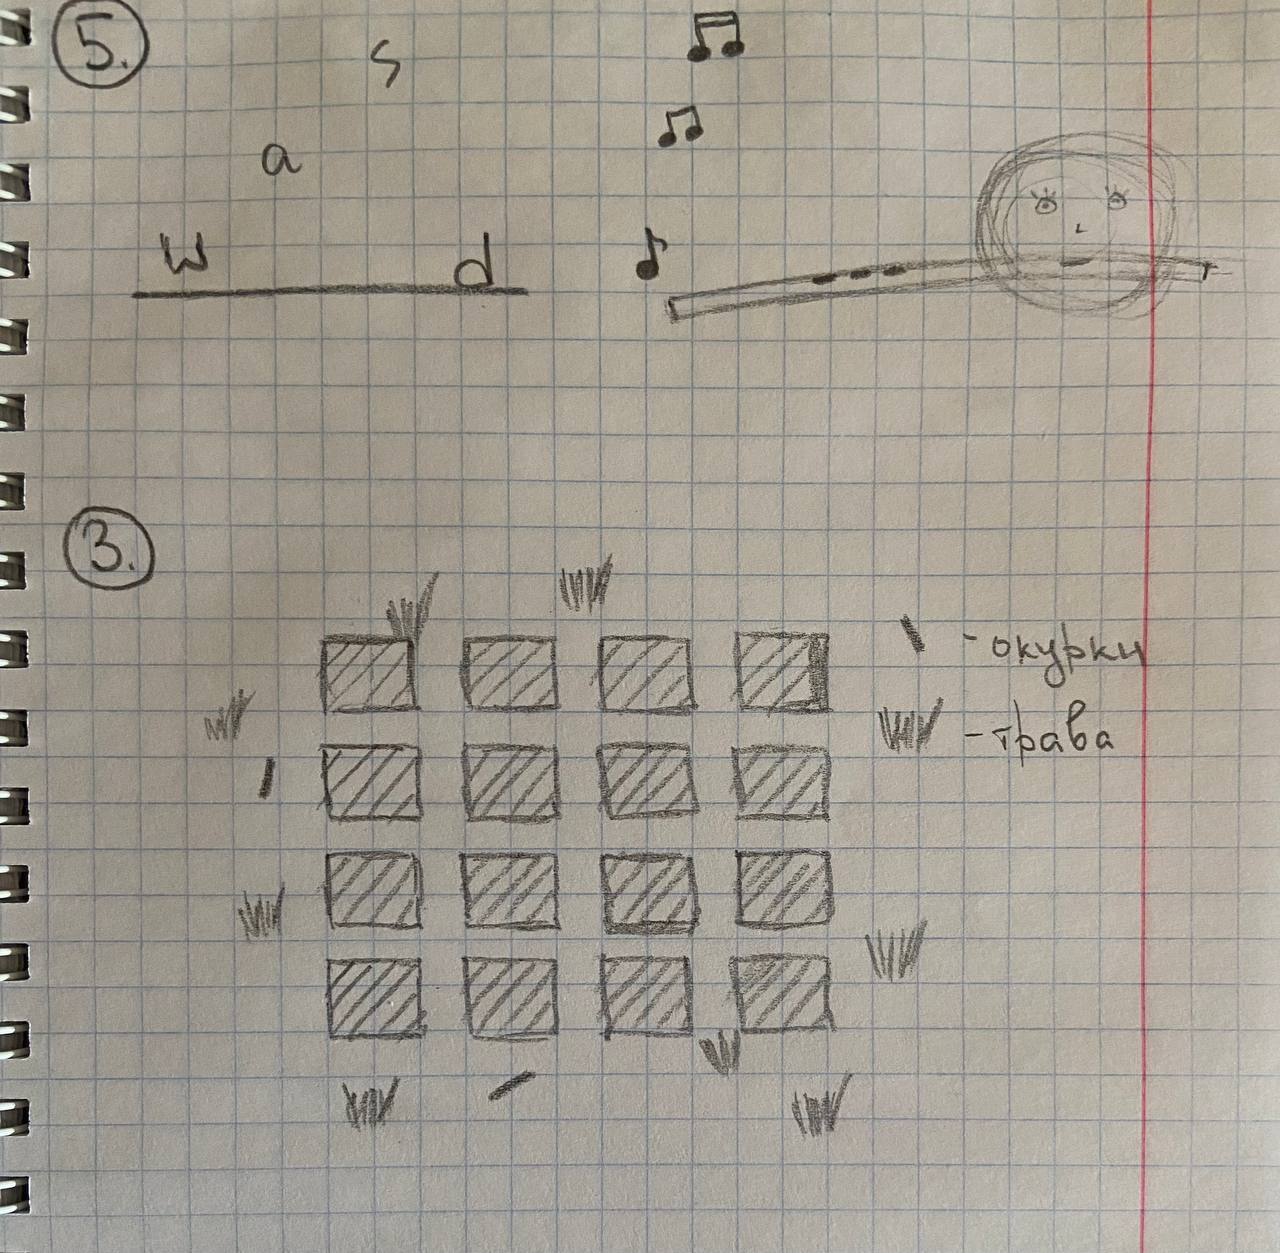 5.
s
a
w d
3.
- окурки
- трава